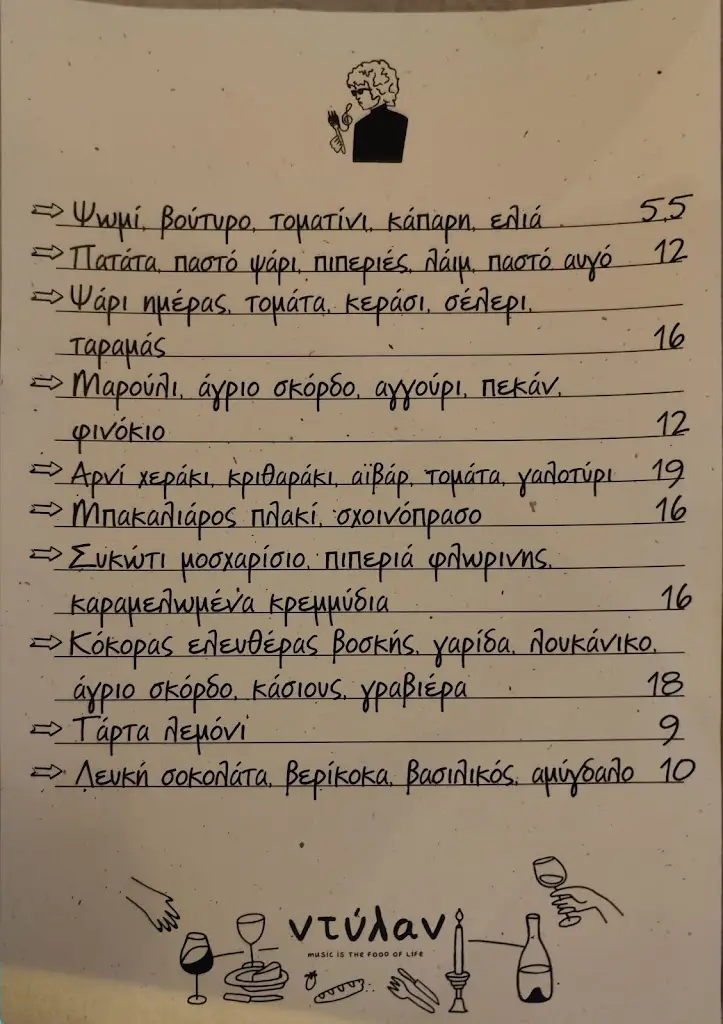 ⇨ Ψωμί, βούτυρο, τοματίνι, κάπαρη, ελιά 5,5
⇨ Πατάτα, παστό ψάρι, πιπεριές, λάιμ, παστό αυγό 12
⇨ Ψάρι ημέρας, τομάτα, κεράσι, σέλερι,
ταραμάς 16
⇨ Μαρούλι, άγριο σκόρδο, αγγούρι, πεκάν,
φινόκιο 12
⇨ Αρνί χεράκι, κριθαράκι, αϊβάρ, τομάτα, γαλοτύρι 19
⇨ Μπακαλιάρος πλακί, σχοινόπρασο 16
⇨ Συκώτι μοσχαρίσιο, πιπεριά φλωρινης,
καραμελωμένα κρεμμύδια 16
⇨ Κόκορας ελευθέρας βοσκής, γαρίδα, λουκάνικο,
άγριο σκόρδο, κάσιους, γραβιέρα 18
⇨ Τάρτα λεμόνι 9
⇨ Λευκή σοκολάτα, βερίκοκα, βασιλικός, αμύγδαλο 10
ντύλαν
MUSIC IS THE FOOD OF LIFE